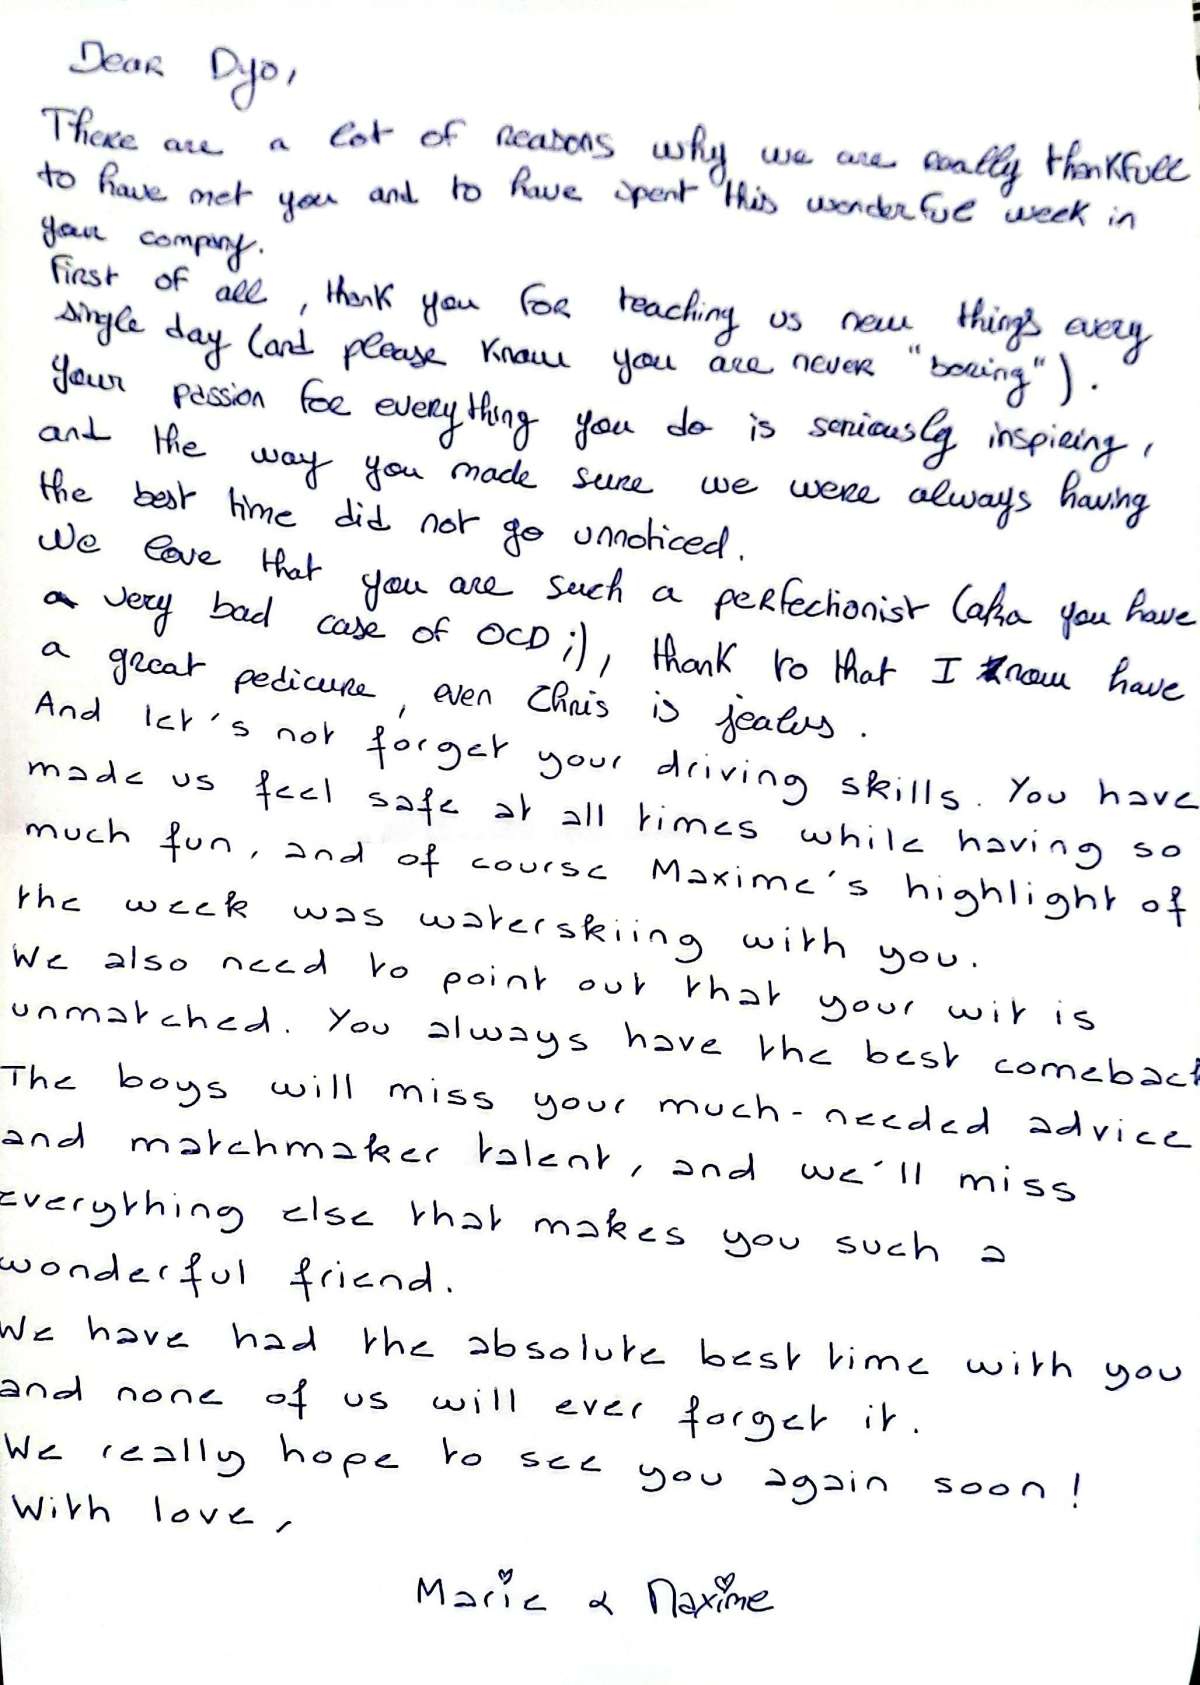 Dear Dyo,
There are a lot of reasons why we are really thankfull
to have met you and to have spent this wonderful week in
your company.
First of all, thank you for teaching us new things every
single day (and please know you are never "boring").
Your passion for everything you do is seriously inspiring,
and the way you made sure we were always having
the best time did not go unnoticed.
We love that you are such a perfectionist (aka you have
a very bad case of OCD ;), thank to that I know have
a great pedicure, even Chris is jealus.
And let's not forget your driving skills. You have
made us feel safe at all times while having so
much fun, and of course Maxime's highlight of
the week was waterskiing with you.
We also need to point out that your wit is
unmatched. You always have the best comeback
The boys will miss your much-needed advice
and matchmaker talent, and we'll miss
everything else that makes you such a
wonderful friend.
We have had the absolute best time with you
and none of us will ever forget it.
We really hope to see you again soon!
With love,
Marie & Maxime